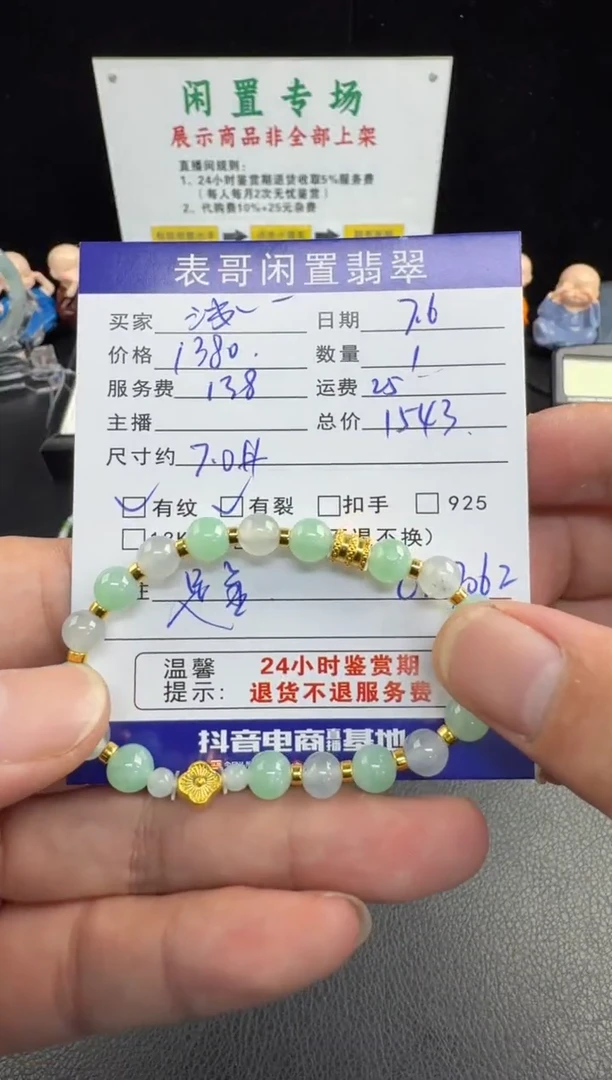 闲置专场
展示商品非全部上架
直播间规则:
1、24小时鉴赏期退货收取5%服务费
(每人每月2次无忧鉴赏)
2、代购费10%+25元杂费
表哥闲置翡翠
买家 浅一 日期 7.6
价格 1380. 数量 1
服务费 138 运费 25
主播 总价 1543.
尺寸约 7.0
有纹 有裂 扣手 925
退不换)
足金
温馨 24小时鉴赏期
提示: 退货不退服务费
抖音电商直播基地